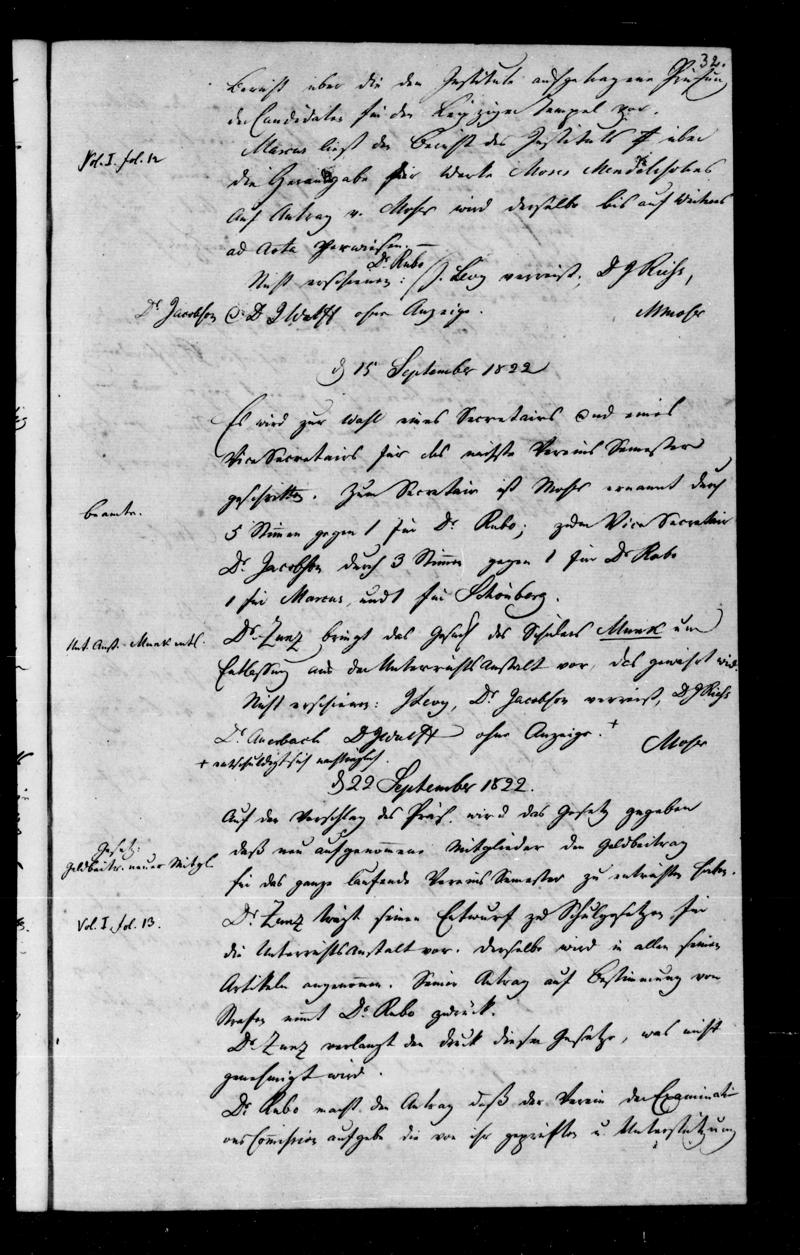 32.
Bericht über die dem Institute aufgetragene Prüfung
der Candidaten für den Leipziger Tempel vor.
Vol. I. fol. 12
Marcus liest den Bericht des Instituts über
die Herausgabe der Werke Moses Mendelssohns
Auf Antrag v. Moser wird derselbe bis auf Weiteres
ad Acta verwiesen. —
Dr Rubo
Nicht erschienen: J. Levy verreist,
Dr. Jacobson ohne Anzeige.
MMoser
d 15 September 1822
Es wird zur Wahl eines Secretairs und eines
ViceSecretairs für das nächste Vereins Semester
beamte.
geschritten. Zum Secretair ist Moser ernannt durch
5 Stimmen gegen 1 für Dr. Rubo; zum Vice Secretair
Dr. Jacobson durch 3 Stimmen gegen 1 für Dr Rubo
1 für Marcus, und 1 für Schönberg.
Unt. Anst. Munk entl.
Dr. Zunz bringt das Gesuch des Schülers Munk um
Entlassung aus der Unterrichts Anstalt vor, das gewährt wird.
Nicht erschienen: J Levy, Dr. Jacobson verreist,
Dr. Auerbach ohne Anzeige. +
Moser
+ entschuldigt sich nachträglich.
d 22 September 1822.
Auf den Vorschlag des Präs. wird das Gesetz gegeben
Gesetz:
Geldbeitr. neuer Mitgl.
daß neu aufgenommene Mitglieder den Geldbeitrag
für das ganze laufende Vereins Semester zu entrichten haben.
Vol. I. fol. 13.
Dr. Zunz trägt seinen Entwurf zu Schulgesetzen für
die Unterrichts Anstalt vor. Derselbe wird in allen seinen
Artikeln angenommen. Seinen Antrag auf Bestimmung von
Strafen nimmt Dr. Rubo zurück.
Dr. Zunz verlangt den Druck dieser Gesetze, was nicht
genehmigt wird.
Dr. Rubo macht den Antrag daß der Verein der Examinati-
ons Commission aufgebe die von ihr geprüften u. Unterstützung